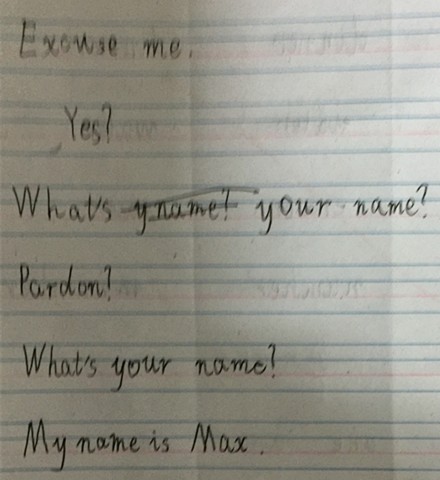 Excuse me.
Yes?
What's y name? your name?
Pardon?
What's your name?
My name is Max.